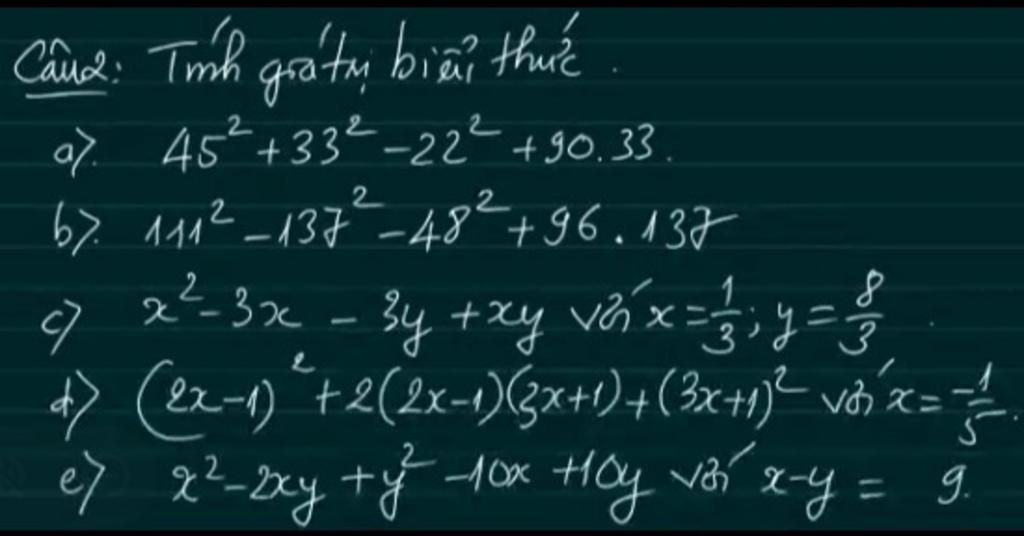 Câu 2: Tính giá trị biểu thức.
a). 45² + 33² - 22² + 90.33.
b). 111² - 137² - 48² + 96.137
c) x² - 3x - 3y + xy với x = 1/3; y = 8/3.
d) (2x-1)² + 2(2x-1)(3x+1) + (3x+1)² với x = -1/5.
e) x² - 2xy + y² - 10x + 10y với x-y = 9.